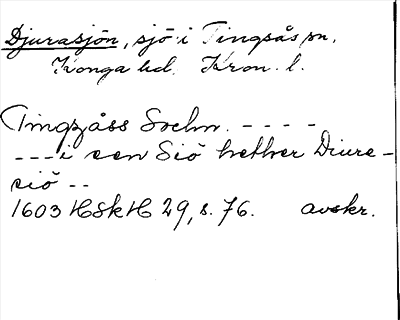 Djurasjön, sjö i Tingsås sn.
Konga hd. Kron. l.
Tingzåss Sochn. - - - -
- - - i een Siö hether Diure-
siö - -
1603 HSkH 29, s. 76. avskr.